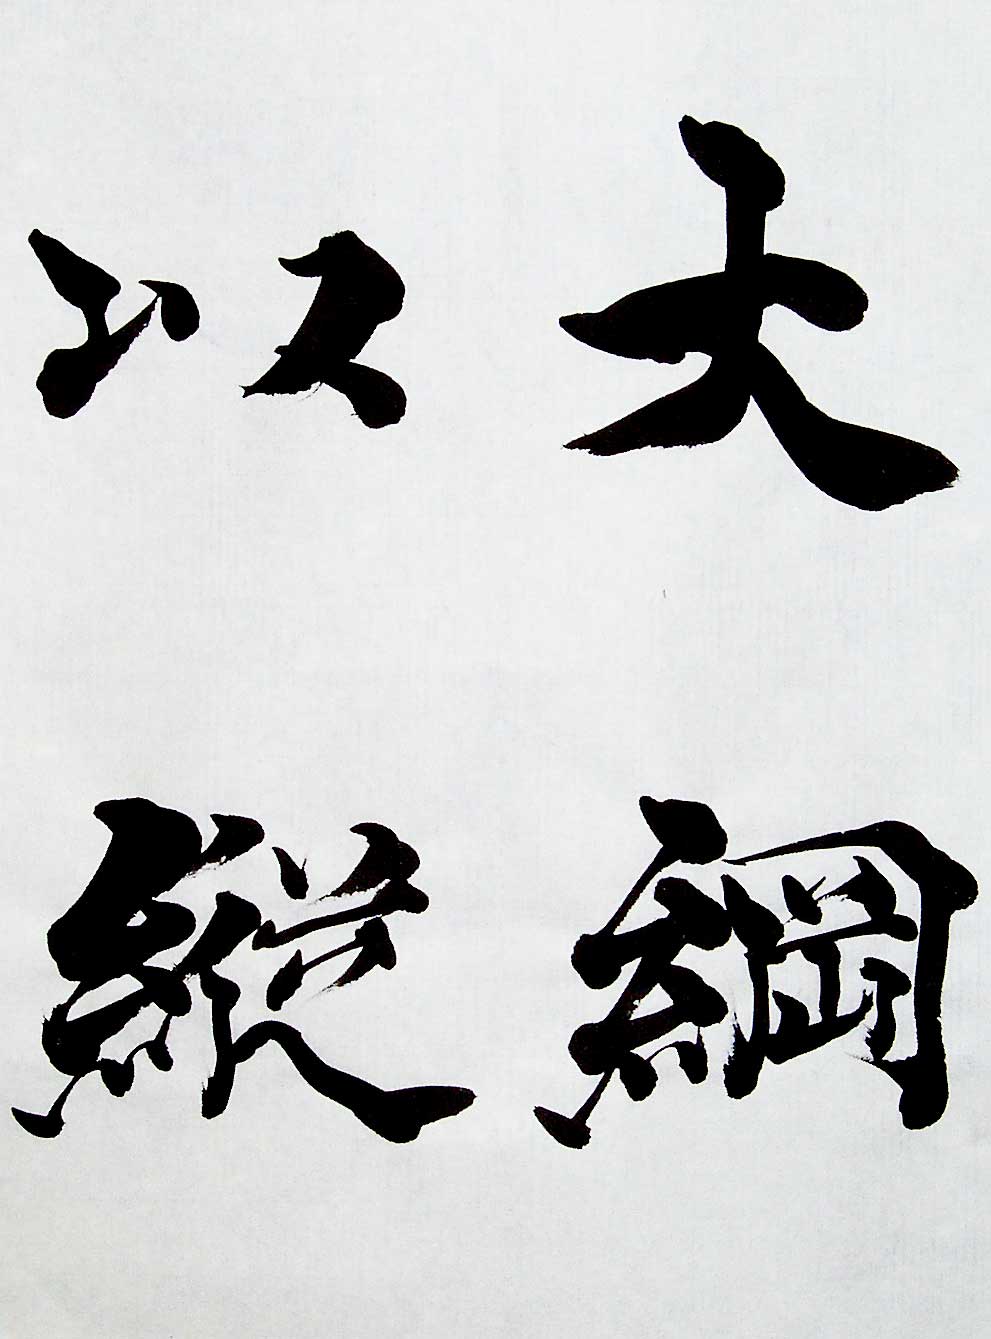 大綱
以縱